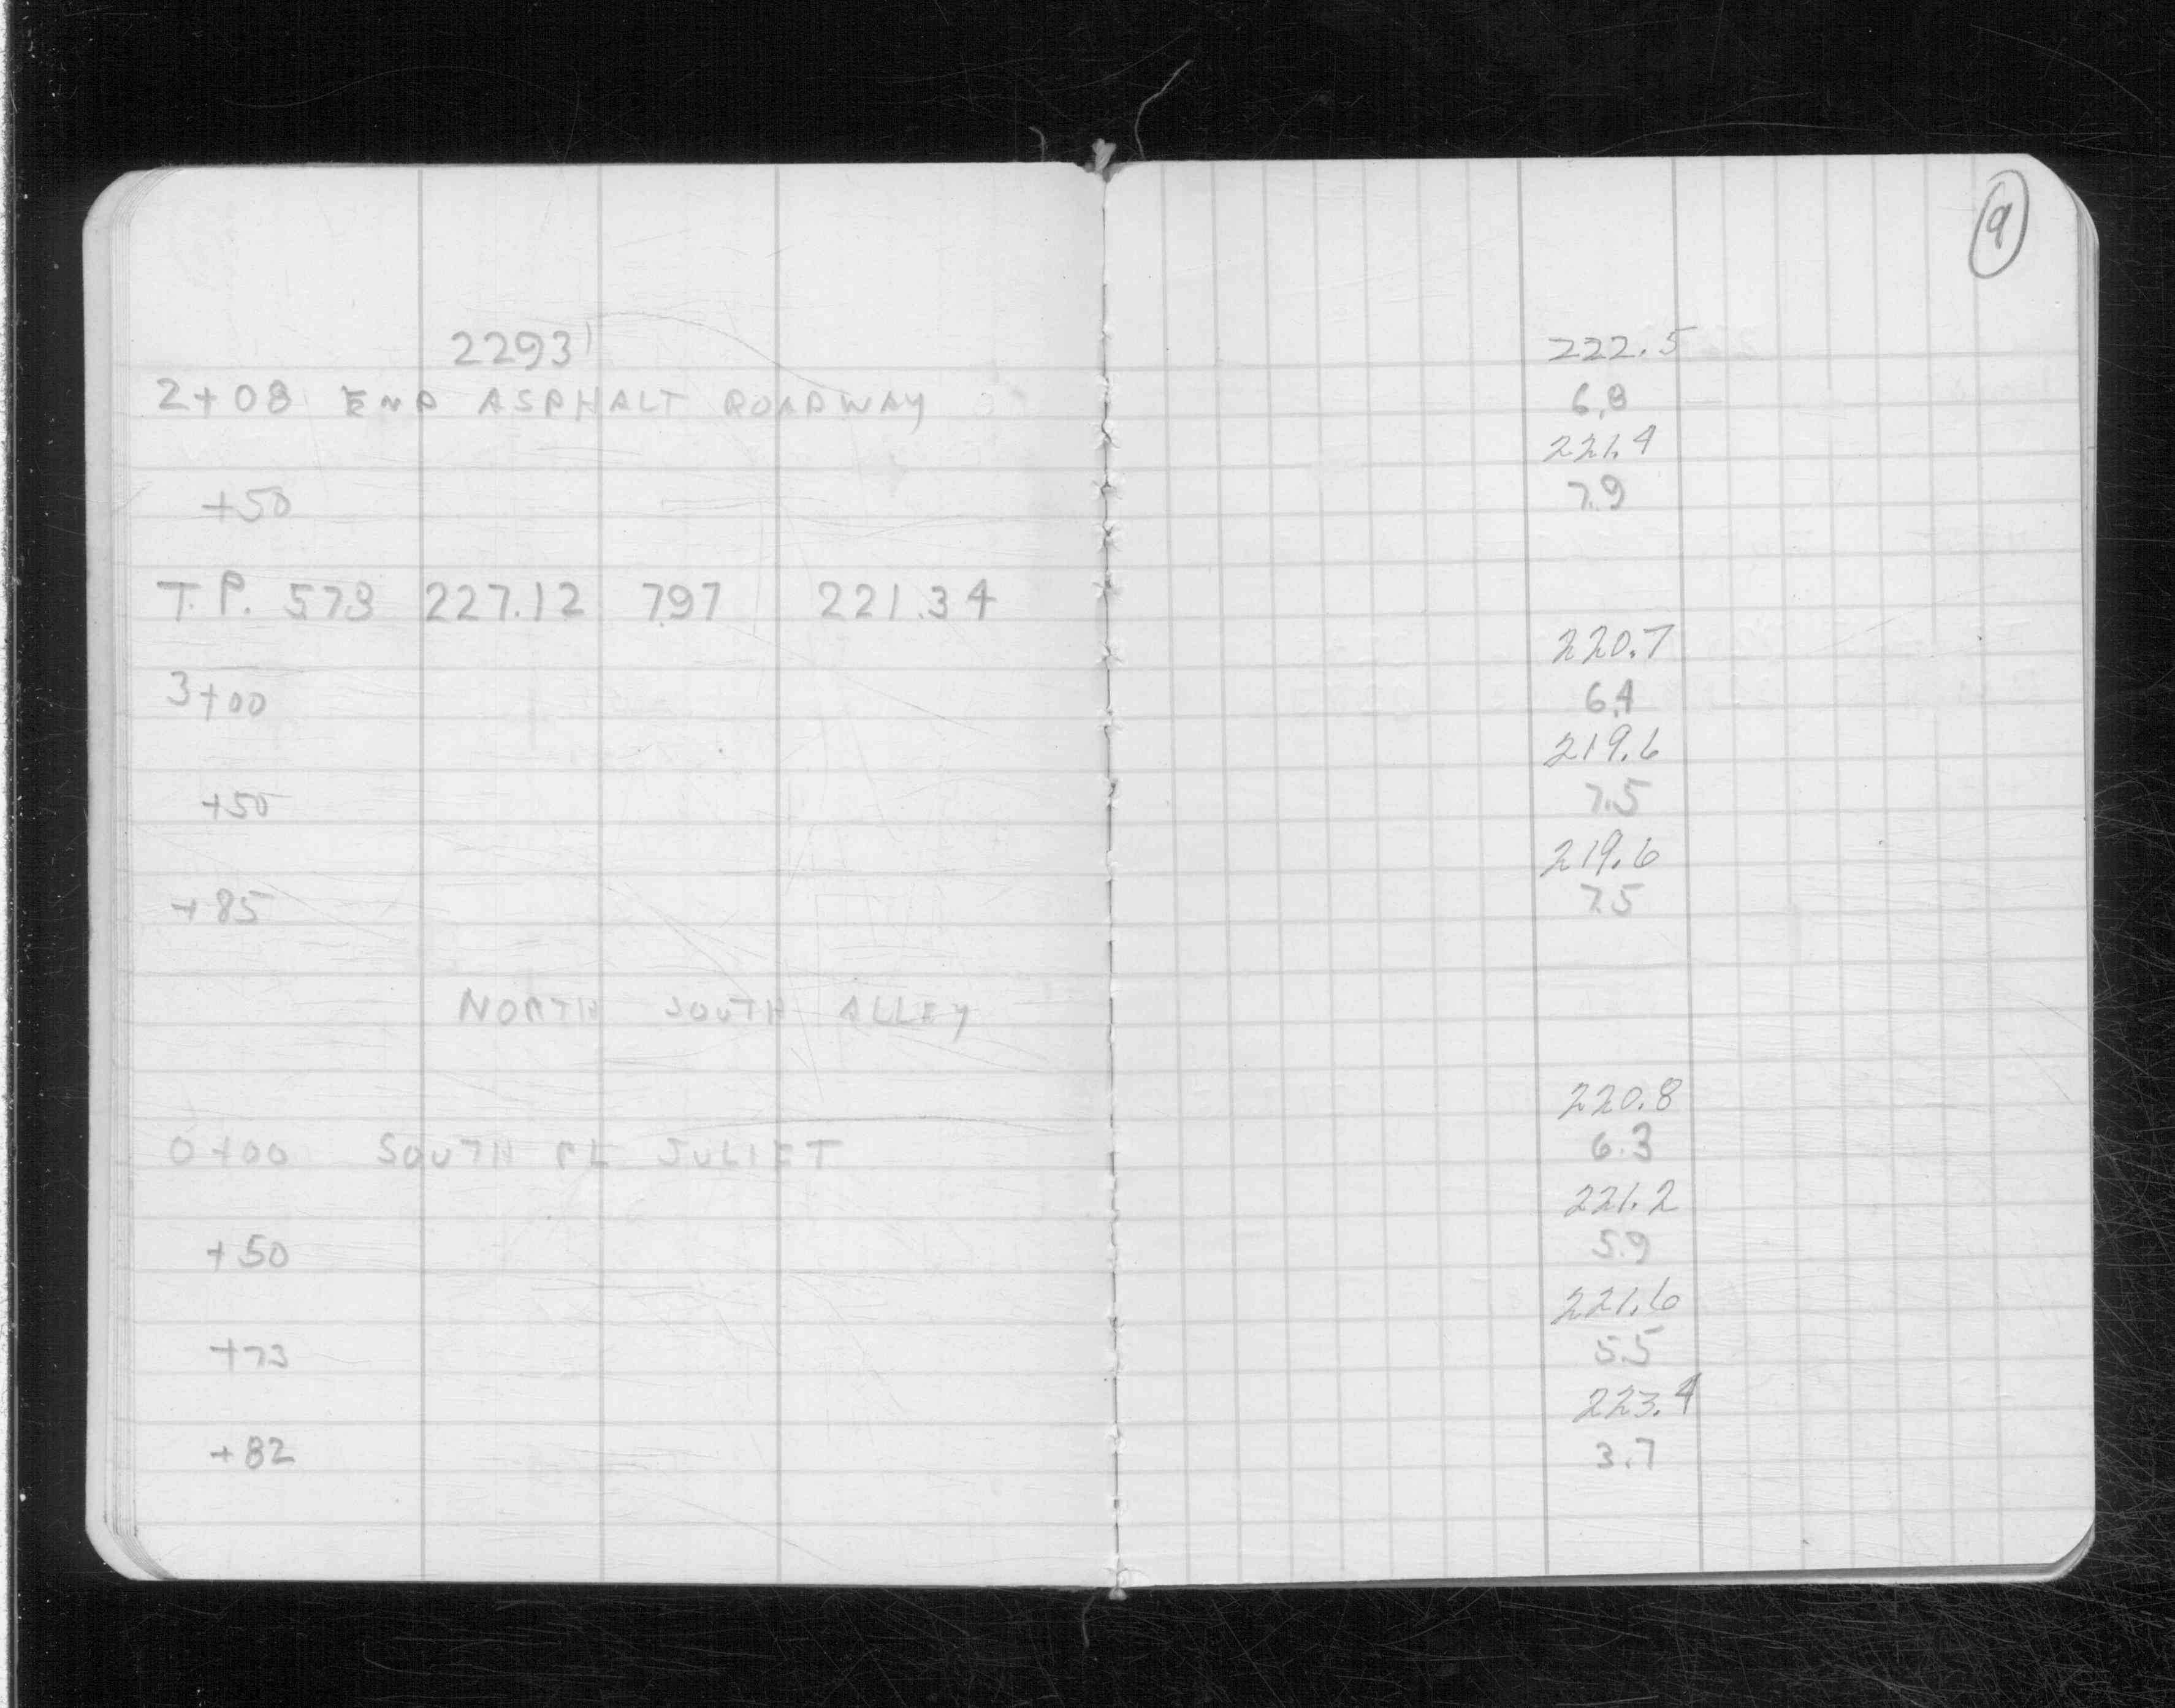 9
2293¹ 222.5
2+08 END ASPHALT ROADWAY 6.8
221.4
+50 7.9
T.P. 578 227.12 797 221.34
220.7
3+00 6.4
219.6
+50 7.5
219.6
+85 7.5
NORTH SOUTH ALLEY
220.8
0+00 SOUTH PL JULIET 6.3
221.2
+50 5.9
221.6
+73 5.5
223.4
+82 3.7